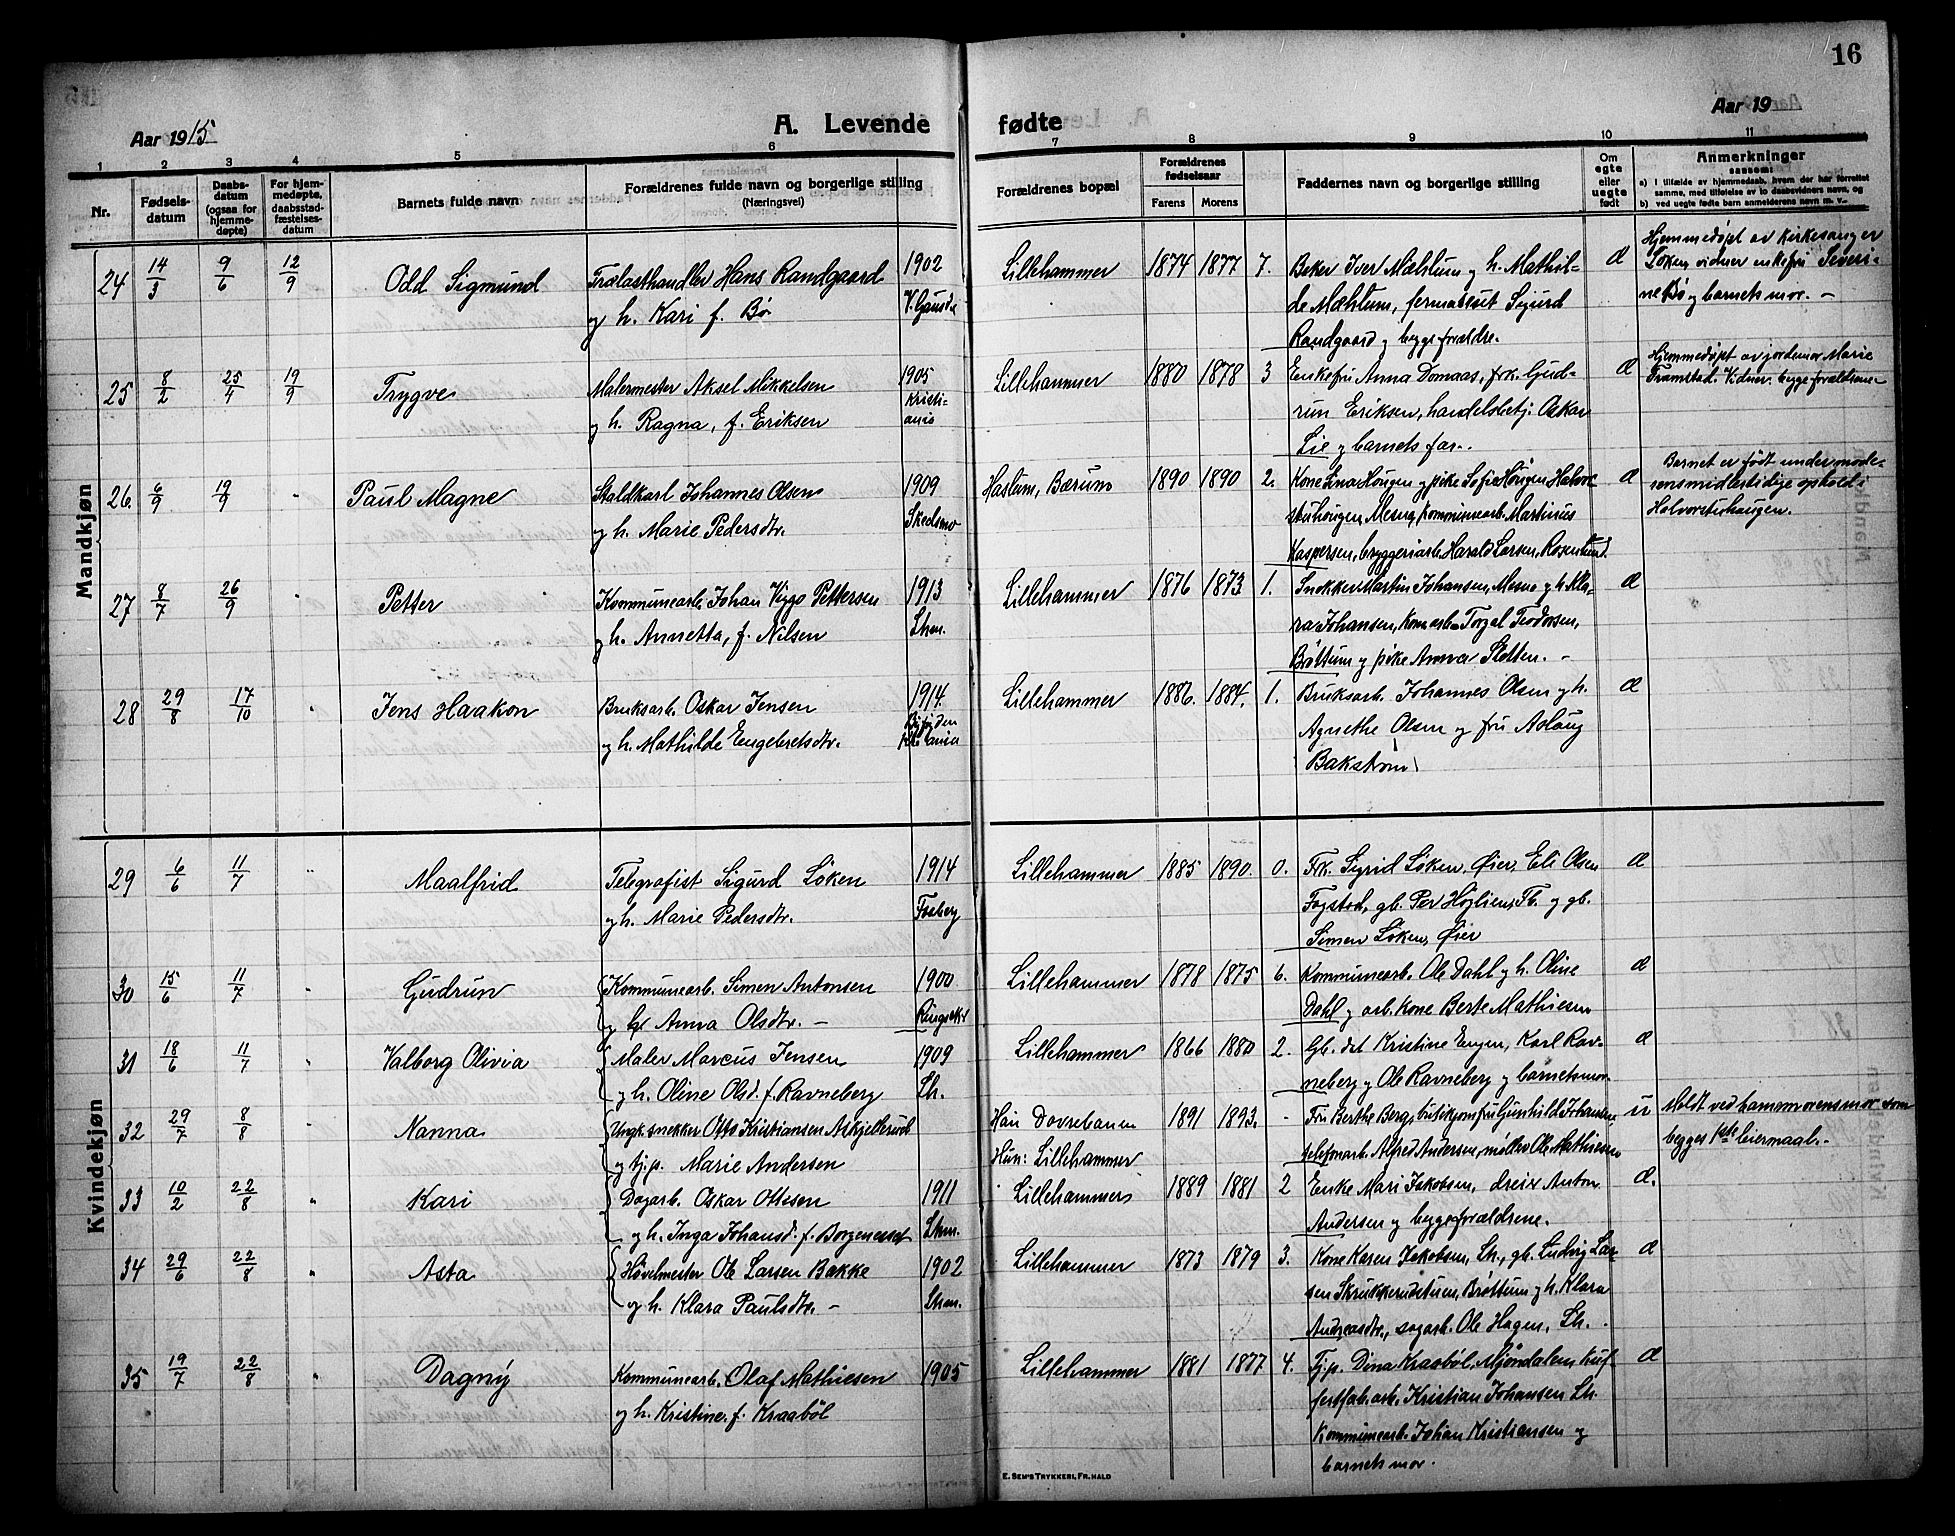 16
Aar 1915
A. Levende fødte
Aar 19
1 2 3 4 5 6 7 8 9 10 11
Nr.
Fødsels-
datum
Daabs-
datum
(ogsaa for
hjemme-
døpte)
For hjem-
medøpte,
daabsstad-
fæstelses-
datum
Barnets fulde navn
Forældrenes fulde navn og borgerlige stilling
(Næringsvei)
Forældrenes bopæl
Forældrenes
fødselsaar
Farens Morens
Faddernes navn og borgerlige stilling
Om
egte
eller
uegte
født
Anmerkninger
saasom:
a) i tilfælde av hjemmedaab, hvem der har forrettet
samme, med tilføielse av to daabsvidners navn, og
b) ved uegte fødte barn anmelderens navn m. v.
Mandkjøn
24 14/3 9/6 12/9 Odd Sigmund
Trælasthandler Hans Randgaard
og h. Kari f. Bø
1902
V. Gausdal
Lillehammer 1874 1877 7.
Beker Iver Mæhlum og h. Mathil-
de Mæhlum, Sigurd
Randgaard og begge forældre.
Hjemmedøpt av kirkesanger
Løken vidner enkefru Severi-
ne Bø og barnets mor. -
25 8/2 25/4 19/9 Trygve
Malermester Aksel Mikkelsen
og h. Ragna, f. Eriksen
1905
Kristi-
ania
Lillehammer 1880 1878 3
Enkefru Anna Domaas, frk. Gud-
run Eriksen, handelsbetj. Oskar
Lie og barnets far.
Hjemmedøpt av jordemor Marie
Tramstad. Vidner begge forældrene
26. 6/9 19/9 " Paul Magne
Staldkarl Johannes Olsen
og h. Marie Pedersdtr.
1909
Skedsmo
Haslum, Bærum 1890 1890 2.
Kone Høugen og pike Sofie Høugen Halvor-
stuhougen, Mesna, kommunearb. Martinius
Kaspersen, bryggeriarb. Harald Larsen, Rosenlund.
Barnet er født under mode-
rens midlertidige ophold i
Halvorstuhaugen.
27 8/7 26/9 " Petter
Kommunearb. Johan Viggo Pettersen
og h. Annetta, f. Nilsen
1913
Lhm.
Lillehammer 1876 1873 1.
Snekker Martin Johansen, Mesna og h. Kla-
ra Johansen, Kom.arb. Torgal Teodorsen,
Brøttum og pike Anna Sletten. -
28 29/8 17/10 " Jens Haakon
Bruksarb. Oskar Jensen
og h. Mathilde Engebretsdtr.
1914.
Lillehammer 1886. 1884. 1.
Bruksarb. Johannes Olsen og h.
Agnethe Olsen og fru Aslaug
Bakstrøm
Kvindekjøn
29 6/6 11/7 " Maalfrid
Telegrafist Sigurd Løken
og h. Marie Pedersdtr.
1914
Faaberg
Lillehammer 1885 1890. 0.
Frk. Sigrid Løken, Øier, Eli Olsen
Fogstad, gb. Per Høgliens, Fb. og gb.
Simen Løken, Øier
30 15/6 11/7 " Gudrun
Kommunearb. Simen Antonsen
og h. Anna Olsdtr. -
1900
Ringsaker
Lillehammer 1878 1875 6.
Kommunearb. Ole Dahl og h. Oline
Dahl og arb. kone Berte Mathiesen
31 18/6 11/7 " Valborg Olivia
Maler Marcus Jensen
og h. Oline Olsd. f. Ravneberg
1909
Lh.
Lillehammer 1866 1880 2.
Gb. dat Kristine Engen, Karl Rav-
neberg og Ole Ravneberg og barnets mor.
32 29/7 8/8 " Nanna
Ungk. snekker Otto Kristiansen Askjellerud
og tj.p. Marie Andersen
Han Dovrebanen
Hun: Lillehammer
1891 1893. -
Fru Berthe Berg, butikjomfru Gunhild Johansen
telefonarb. Alfred Andersen, møller Ole Mathiesen
u
Meldt ved hammorens mor som
begges 1ste leiermaal.-
33 10/2 22/8 " Kari
Dagarb. Oskar Ottesen
og h. Inga Johansd. f. Borgeneset
1911
Lhm.
Lillehammer 1889 1881 2
Enke Mari Jakobsen, dreier Anton
Andersen og begge forældrene.
34 29/6 22/8 " Asta
Høvelmester Ole Larsen Bakke
og h. Klara Paulsdtr. -
1902
Lhm.
Lillehammer 1873 1879 3.
Kone Karen Jakobsen, Lh., gb. Ludvig Lar-
sen Skrukkerudstuen, Brøttum og h. Klara
Andreasdtr., sagarb. Ole Hagen, Lh.
35 19/7 22/8 " Dagny
Kommunearb. Olaf Mathiesen
og h. Kristine f. Kraabøl
1905
Lillehammer 1881 1877 4.
Tj.p. Dina Kraabøl, Mjøndalen,
fabr.arb. Kristian Johansen Lh.
Kommunearb. Johan Kristiansen og
barnets mor.
E. SEM'S TRYKKERI, FR.HALD